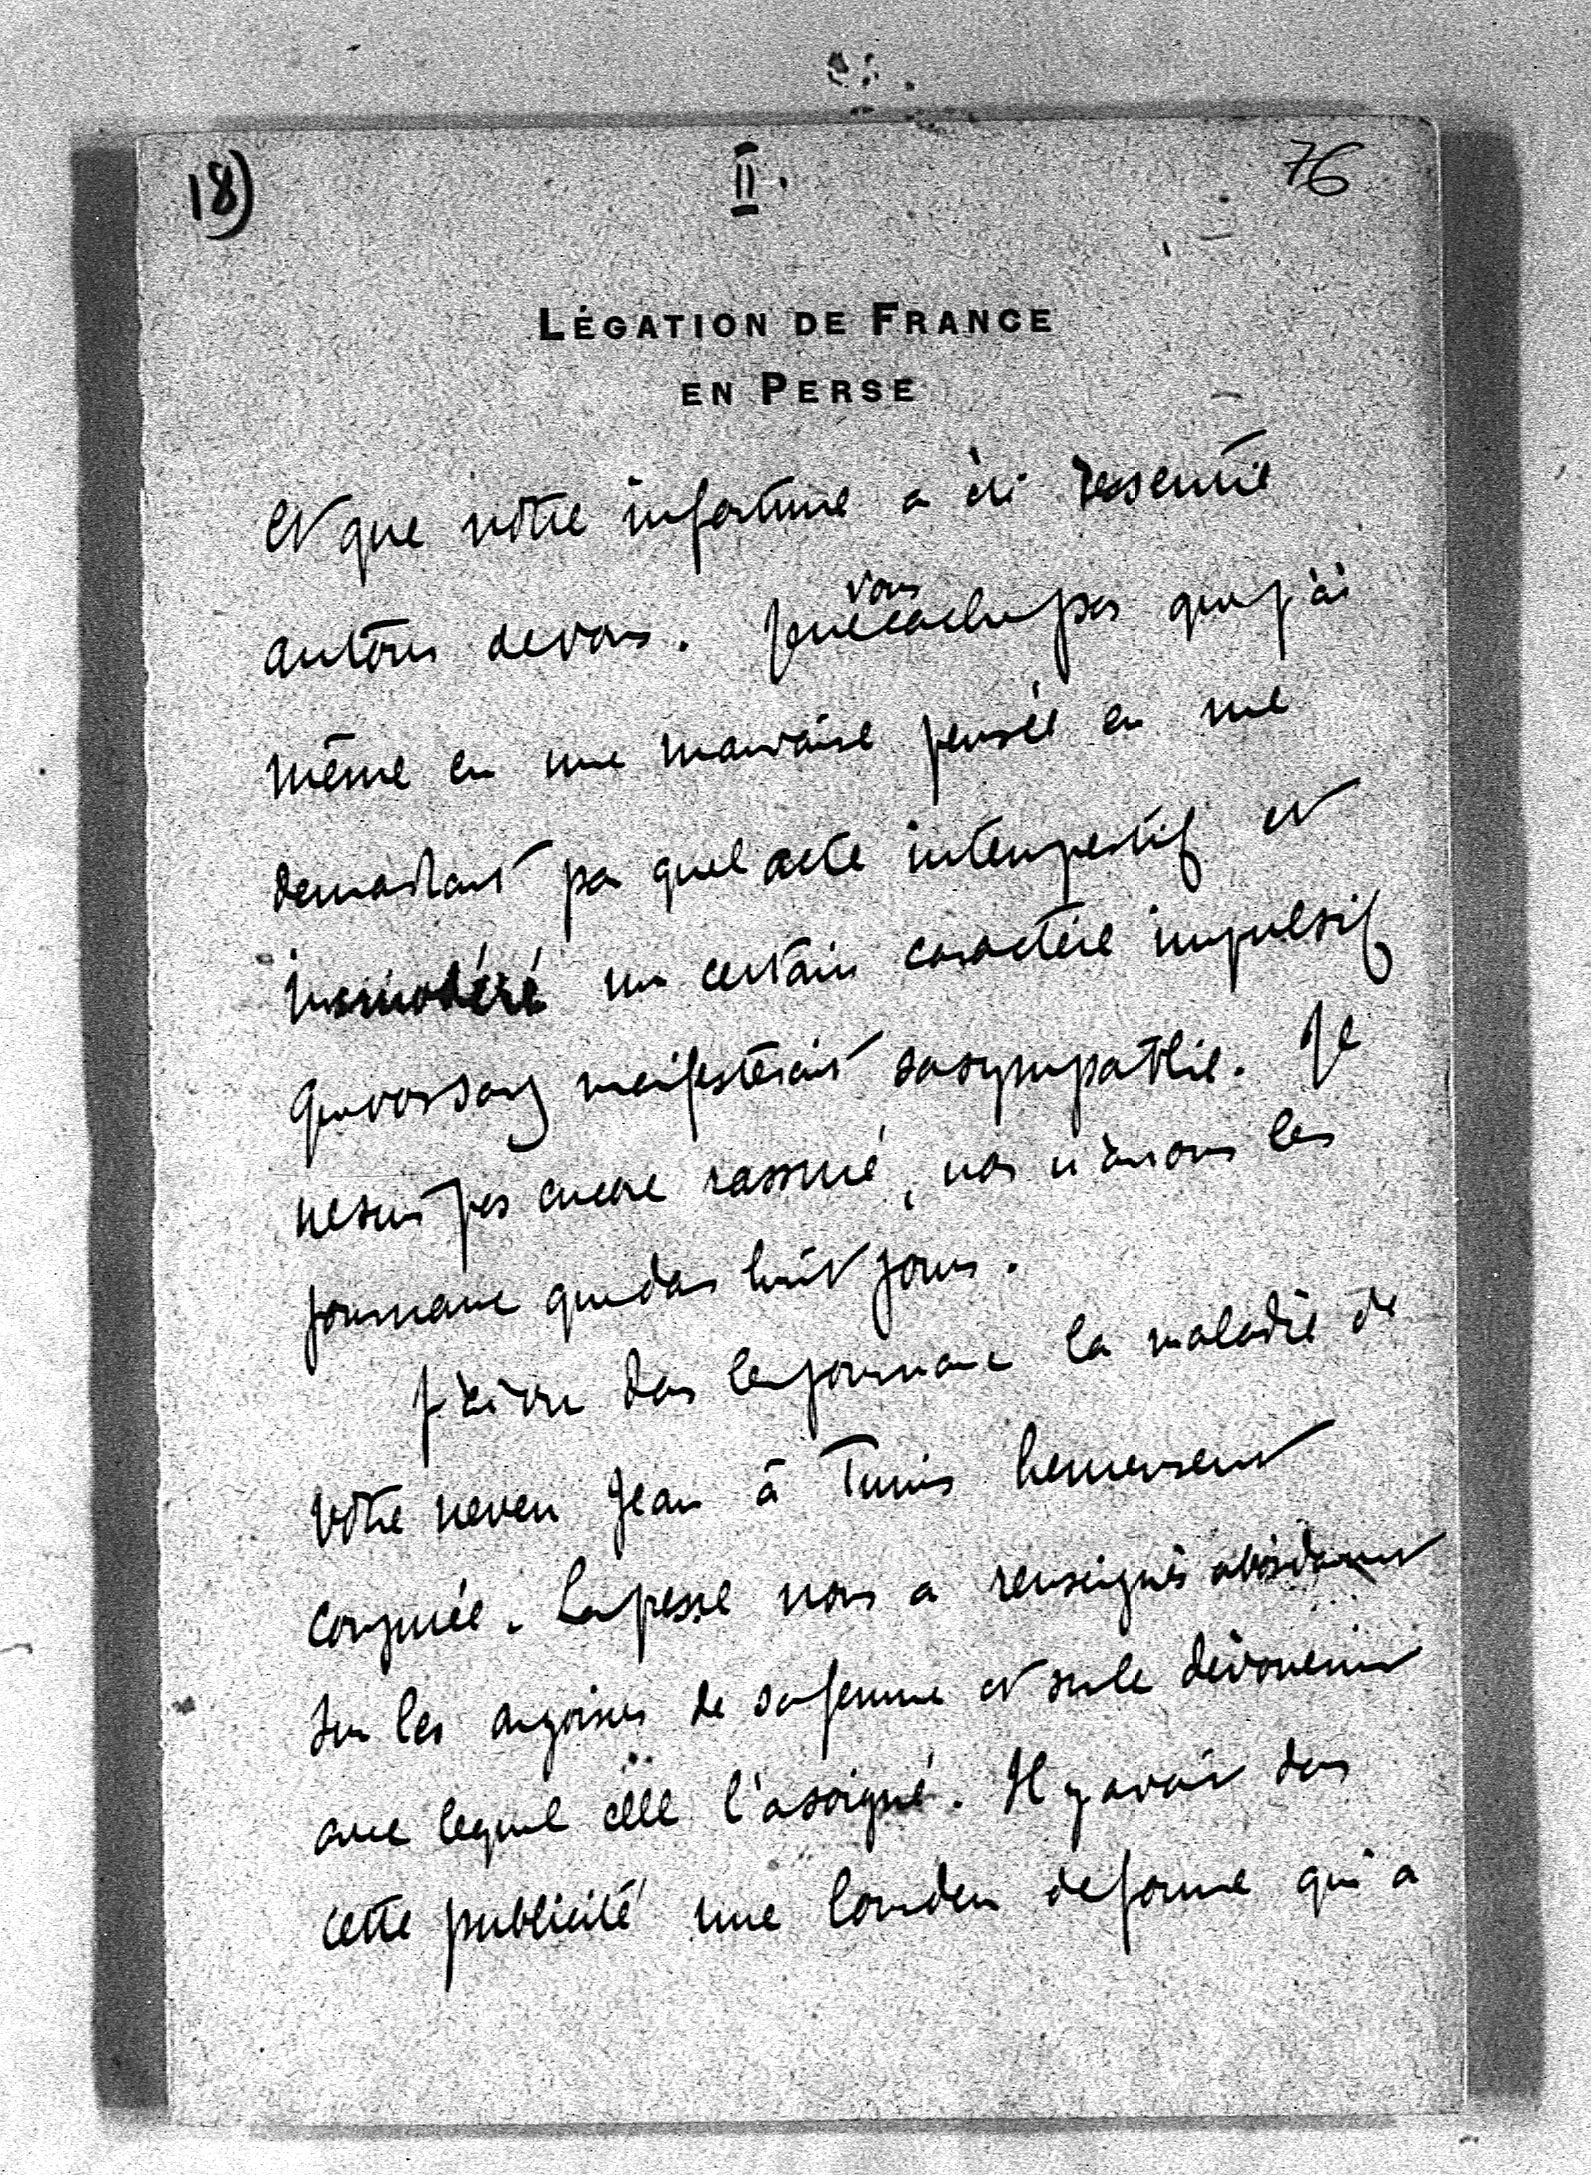 18)
II.
76
LÉGATION DE FRANCE
EN PERSE
et que notre infortune a été ressentie
autour de vous. Je ne vous cache pas que j'ai
même eu une mauvaise pensée en me
demandant par quel acte intempestif et
immodéré un certain caractère impulsif
que vous savez manifesterait sa sympathie. Je
ne suis pas encore rassuré, nous n'aurons les
journaux que dans huit jours.
J'ai vu dans les journaux la maladie de
votre neveu Jean à Tunis heureusement
conjurée. La presse nous a renseignés abondamment
sur les angoisses de sa femme et sur le dévouement
avec lequel elle l'a soigné. Il y avait dans
cette publicité une lourdeur de forme qui a